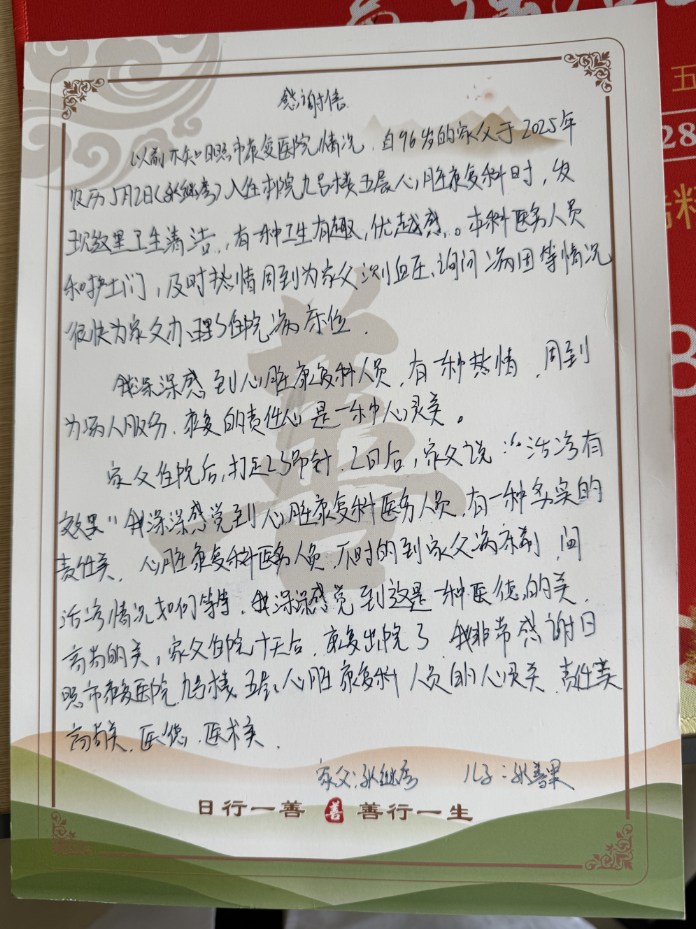 感谢信
以前不知日照市康复医院情况，自96岁的家父于2025年
农历5月2日入住本院九号楼五层心脏康复科时，发
现这里卫生清洁，有一种卫生有趣，优越感。本科医务人员
和护士们，及时热情周到为家父测血压、询问病因等情况
很快为家父办理了住院病床位．
我深深感到心脏康复科人员，有一种热情，周到
为病人服务．康复的责任心是一种心灵美。
家父住院后，打上2 3吊针．2日后，家父说：“治疗有
效果”我深深感觉到心脏康复科医务人员．有一种务实的
责任美．心脏康复科医务人员．不时的到家父病床前，问
治疗情况如何等等．我深深感觉到这是一种医德的美．
高尚的美，家父住院十天后．康复出院了 我非常感谢日
照市康复医院．九号楼．五层心脏康复科人员的心灵美、责任美
高尚美．医德．医术美．
家父： 儿子：
日行一善 善 善行一生
善
五
28